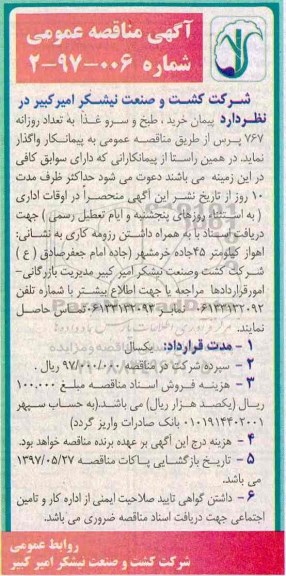 آگهی مناقصه عمومی
شماره ۰۰۶-۹۷-۲
شرکت کشت و صنعت نیشکر امیرکبیر در
نظردارد پیمان خرید ، طبخ و سرو غذا به تعداد روزانه
۷۶۷ پرس از طریق مناقصه عمومی به پیمانکار واگذار
نماید. در همین راستا از پیمانکارانی که دارای سوابق کافی
در این زمینه می باشند دعوت می شود حداکثر ظرف مدت
۱۰ روز از تاریخ نشر این آگهی منحصراً در اوقات اداری
( به استثناء روزهای پنجشنبه و ایام تعطیل رسمی ) جهت
دریافت اسناد با به همراه داشتن رزومه کاری به نشانی:
اهواز کیلومتر ۴۵جاده خرمشهر (جاده امام جعفرصادق ( ع )
شرکت کشت وصنعت نیشکر امیر کبیر مدیریت بازرگانی-
امورقراردادها مراجعه یا جهت اطلاع بیشتر با شماره تلفن
۰۶۱۳۳۱۳۲۰۹۲ نمابر ۰۶۱۳۳۱۳۲۰۹۳ تماس حاصل
نمایند.
۱ - مدت قرارداد: یکسال
۲ - سپرده شرکت در مناقصه ۹۷/۰۰۰/۰۰۰ ریال .
۳ - هزینه فروش اسناد مناقصه مبلغ ۱۰۰.۰۰۰
ریال (یکصد هزار ریال) می باشند.(به حساب سپهر
۰۱۰۱۹۱۴۴۰۲۰۰۱ بانک صادرات واریز گردد)
۴ - هزینه درج این آگهی بر عهده برنده مناقصه خواهد بود.
۵ - تاریخ بازگشایی پاکات مناقصه ۱۳۹۷/۰۵/۲۷
می باشد.
۶ - داشتن گواهی تایید صلاحیت ایمنی از اداره کار و تامین
اجتماعی جهت دریافت اسناد مناقصه ضروری می باشد.
روابط عمومی
شرکت کشت و صنعت نیشکر امیر کبیر